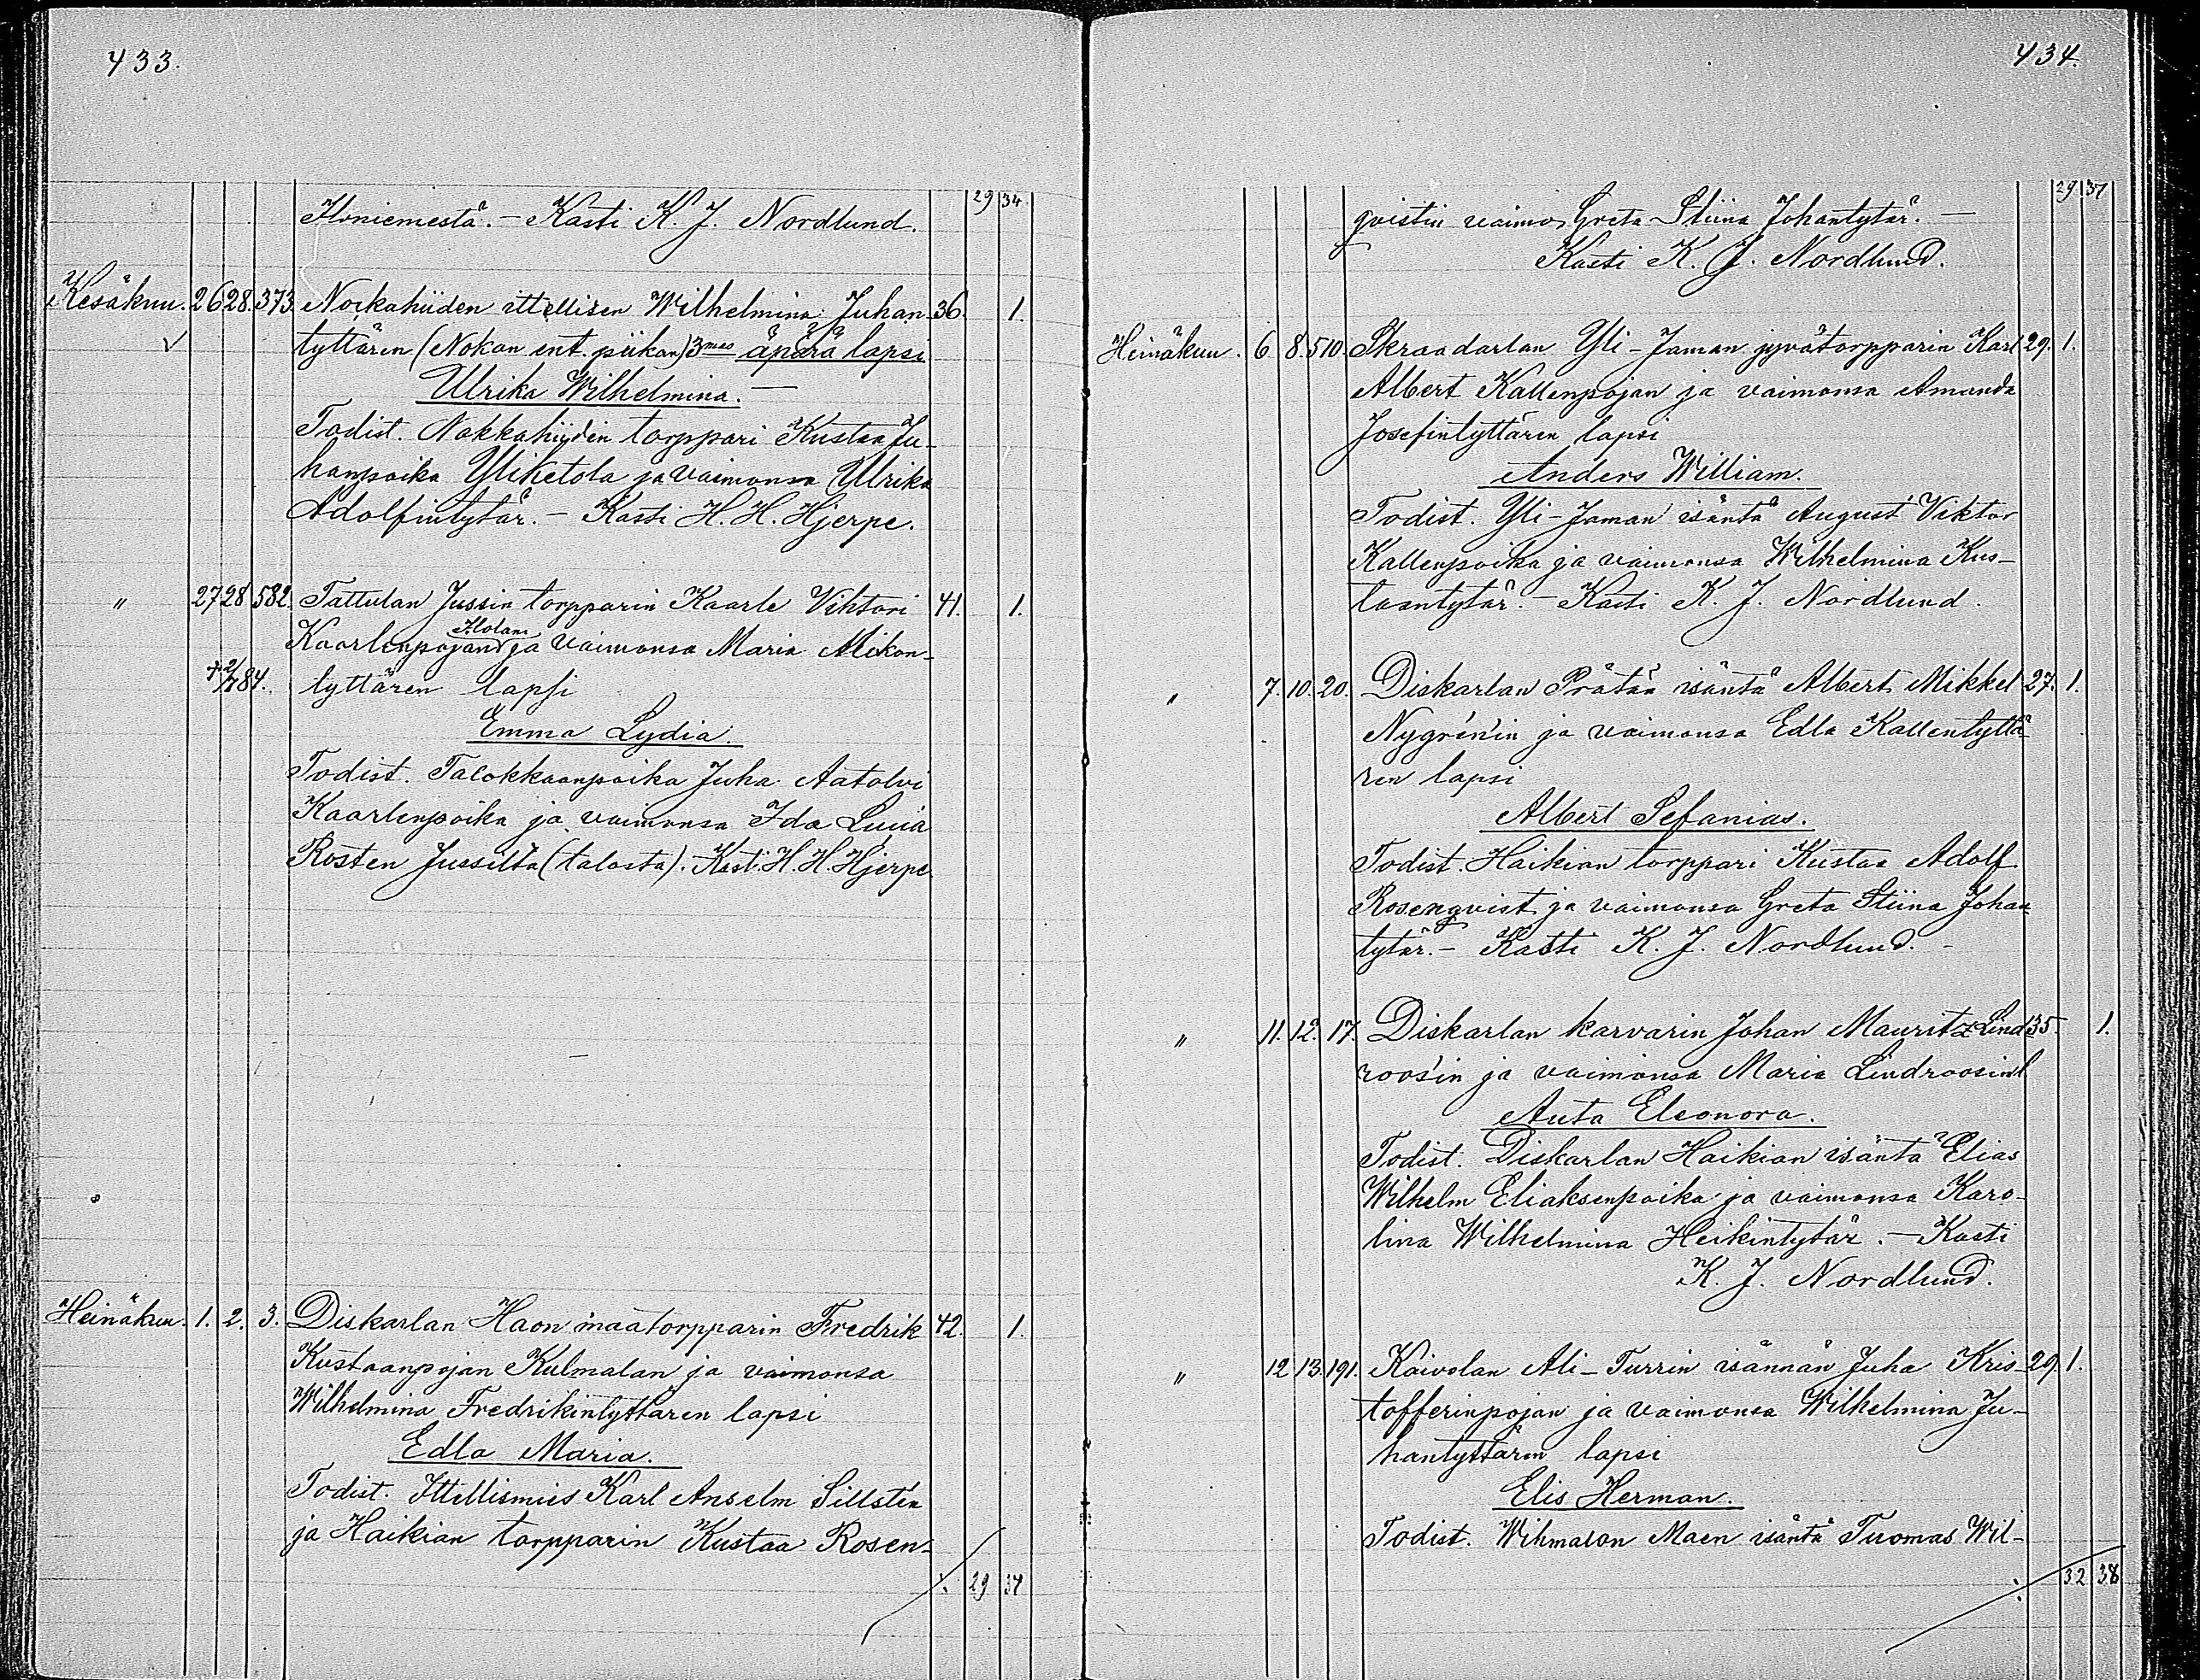 433.
29 34
Iloniemestä. - Kasti K. J. Nordlund.
Kesäkuu. 26 28. 373. Nokkahiiden ittellisen Wilhelmina Juhan- 36. 1.
tyttären (Nokan ent. piikan) 3mas äpärä lapsi
Ulrika Wilhelmina. -
Todist. Nokkahiiden torppari Kustaa Ju-
hanpoika Yliketola ja vaimonsa Ulrika
Adolfintytär. - Kasti H. H. Hjerpe.
" 27 28 582. Tattulan Jussin torpparin Kaarle Vihtori 41. 1.
Kaarlenpojan Ilolan ja vaimonsa Maria Mikon-
+ 2/7 84. tyttären lapsi
Emma Lydia.
Todist. Talokkaanpoika Juha Aatolvi
Kaarlenpoika ja vaimonsa Ida Lucia
Rosten Jussilta (talosta). Kasti H. H. Hjerpe.
Heinäkuu. 1. 2. 3. Diskarlan Haon maatorpparin Fredrik 42. 1.
Kustaanpojan Kulmalan ja vaimonsa
Wilhelmina Fredrikintyttären lapsi
Edla Maria.
Todist. Ittellismies Karl Anselm Sillstén
ja Haikian torpparin Kustaa Rosen-
29 37
434.
29 37
qvistin vaimo Greta Stiina Johantytär. -
Kasti K. J. Nordlund.
Heinäkuu. 6 8. 510. Skraadarlan Yli-Jaman jyvätorpparin Karl 29. 1.
Albert Kallenpojan ja vaimonsa Amanda
Josefintyttären lapsi
Anders William.
Todist. Yli-Jaman isäntä August Viktor
Kallenpoika ja vaimonsa Wilhelmina Kus-
taantytär. - Kasti K. J. Nordlund.
" 7. 10. 20. Diskarlan Prätän isäntä Albert Mikkel 27. 1.
Nygrén'in ja vaimonsa Edla Kallentyttä-
ren lapsi
Albert Sefanias.
Todist. Haikian torppari Kustaa Adolf
Rosenqvist ja vaimonsa Greta Stiina Johan-
tytär. - Kasti K. J. Nordlund. -
" 11. 12. 17. Diskarlan karvarin Johan Mauritz Lind- 35. 1.
roos'in ja vaimonsa Maria Lindroosin l.
Auta Eleonora.
Todist. Diskarlan Haikian isäntä Elias
Wilhelm Eliaksenpoika ja vaimonsa Karo-
lina Wilhelmina Heikintytär. - Kasti
K. J. Nordlund.
" 12 13. 191. Kaivolan Ali-Turrin isännän Juha Kris- 29. 1.
tofferinpojan ja vaimonsa Wilhelmina Ju-
hantyttären lapsi
Elis Herman.
Todist. Wihmalon Maen isäntä Tuomas Wil-
32 38